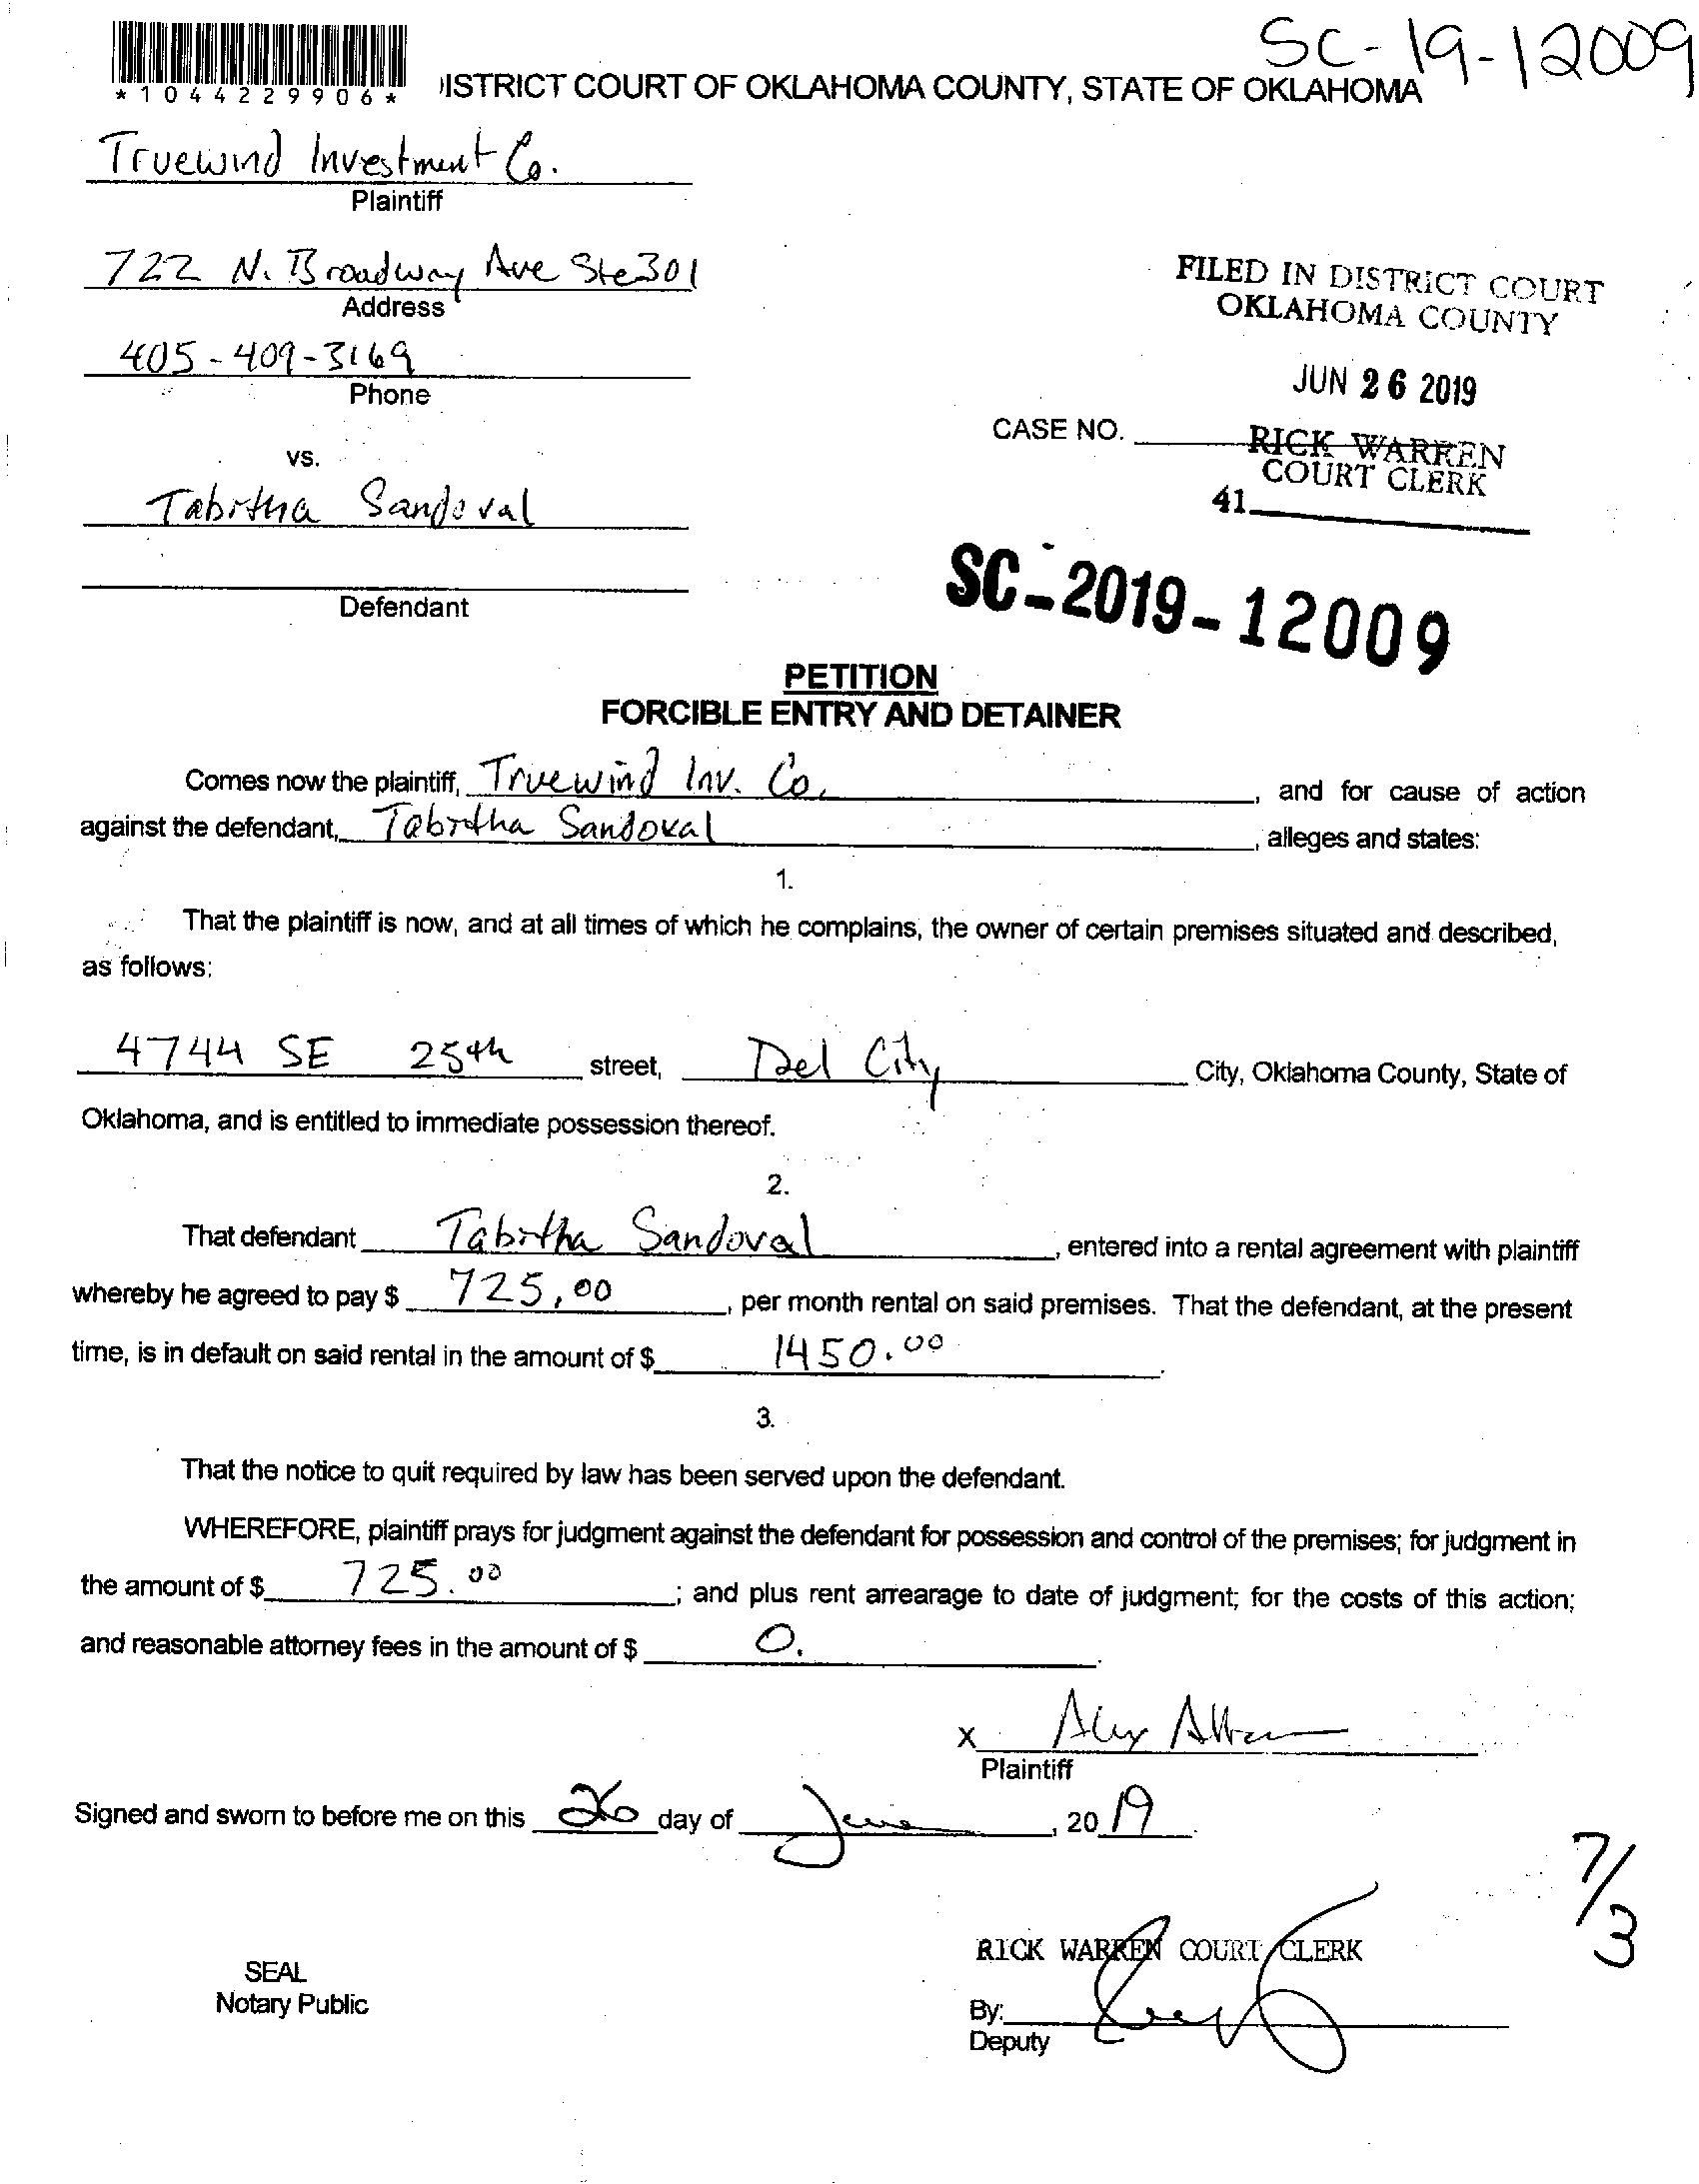 SC-19-12009
*1044229906*
ISTRICT COURT OF OKLAHOMA COUNTY, STATE OF OKLAHOMA
Truewind Investment Co.
Plaintiff
722 N. Broadway Ave Ste 301
Address
FILED IN DISTRICT COURT
OKLAHOMA COUNTY
405-409-3169
Phone
JUN 26 2019
CASE NO.
RICK WARREN
COURT CLERK
41
vs.
Tabitha Sandoval
Defendant
SC-2019-12009
PETITION
FORCIBLE ENTRY AND DETAINER
Comes now the plaintiff, Truewind Inv. Co. , and for cause of action
against the defendant, Tabitha Sandoval , alleges and states:
1.
That the plaintiff is now, and at all times of which he complains, the owner of certain premises situated and described,
as follows:
4744 SE 25th street, Del City City, Oklahoma County, State of
Oklahoma, and is entitled to immediate possession thereof.
2.
That defendant Tabitha Sandoval , entered into a rental agreement with plaintiff
whereby he agreed to pay $ 725.00 , per month rental on said premises. That the defendant, at the present
time, is in default on said rental in the amount of $ 1450.00 .
3.
That the notice to quit required by law has been served upon the defendant.
WHEREFORE, plaintiff prays for judgment against the defendant for possession and control of the premises; for judgment in
the amount of $ 725.00 ; and plus rent arrearage to date of judgment; for the costs of this action;
and reasonable attorney fees in the amount of $ 0. .
X
Plaintiff
Signed and sworn to before me on this 26 day of June , 20 19 .
7/3
RICK WARREN COURT CLERK
SEAL
Notary Public
By:
Deputy